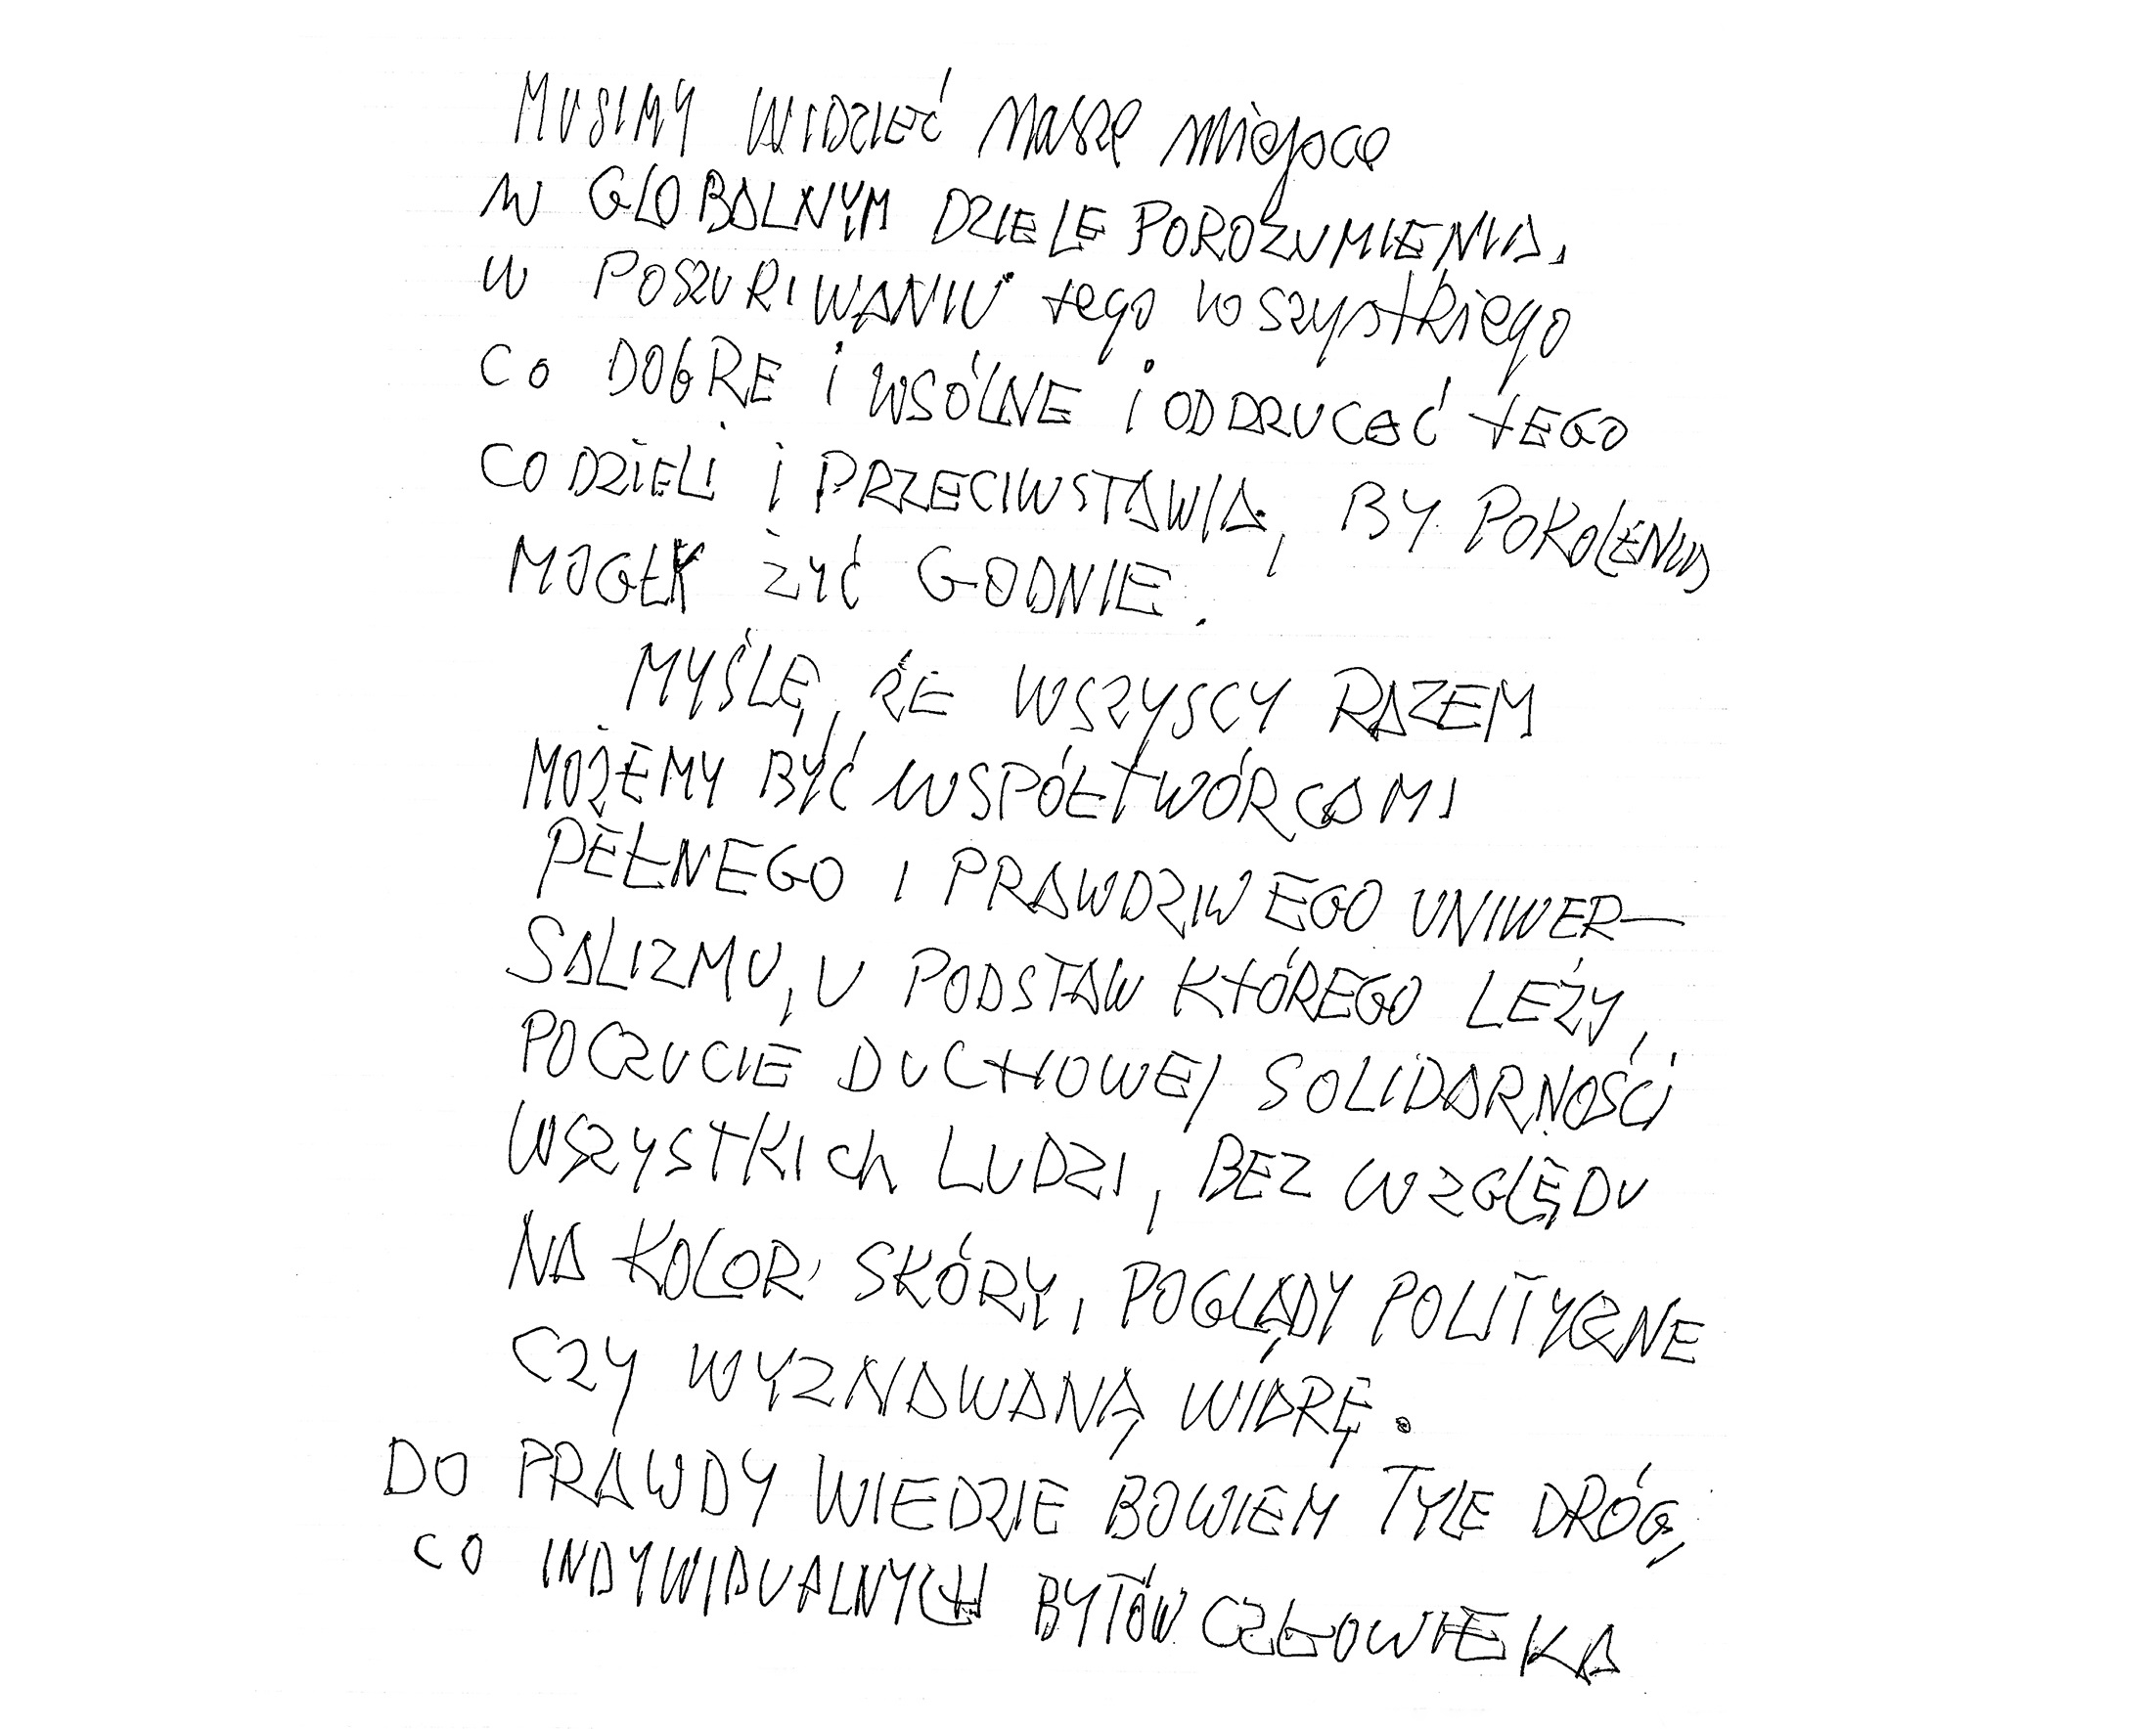 MUSIMY WIDZIEĆ nasze miejsce
w GLOBALNYM DZIELE POROZUMIENIA,
w POSZUKIWANIU tego wszystkiego
co DOBRE i WSÓLNE i ODRZUCAĆ tEGO
CO DZIELI i PRZECIWSTAWIA, BY POKOLENIA
MOGŁY ŻYĆ GODNIE.
MYŚLĘ, ŻE WSZYSCY RAZEM
MOŻEMY BYĆ WSPÓŁTWÓRCAMI
PEŁNEGO I PRAWDZIWEGO UNIWER—
SALIZMU, U PODSTAW KTÓREGO LEŻY,
POCZUCIE DUCHOWEJ SOLIDARNOŚCI
WSZYSTKIch LUDZI, BEZ WZGLĘDU
NA KOLOR SKÓRY, POGLĄDY POLITYCZNE
CZY WYZNAWANĄ WIARĘ.
DO PRAWDY WIEDZIE BOWIEM TYLE DRÓG,
CO INDYWIDUALNYCH BYTÓW CZŁOWIEKA